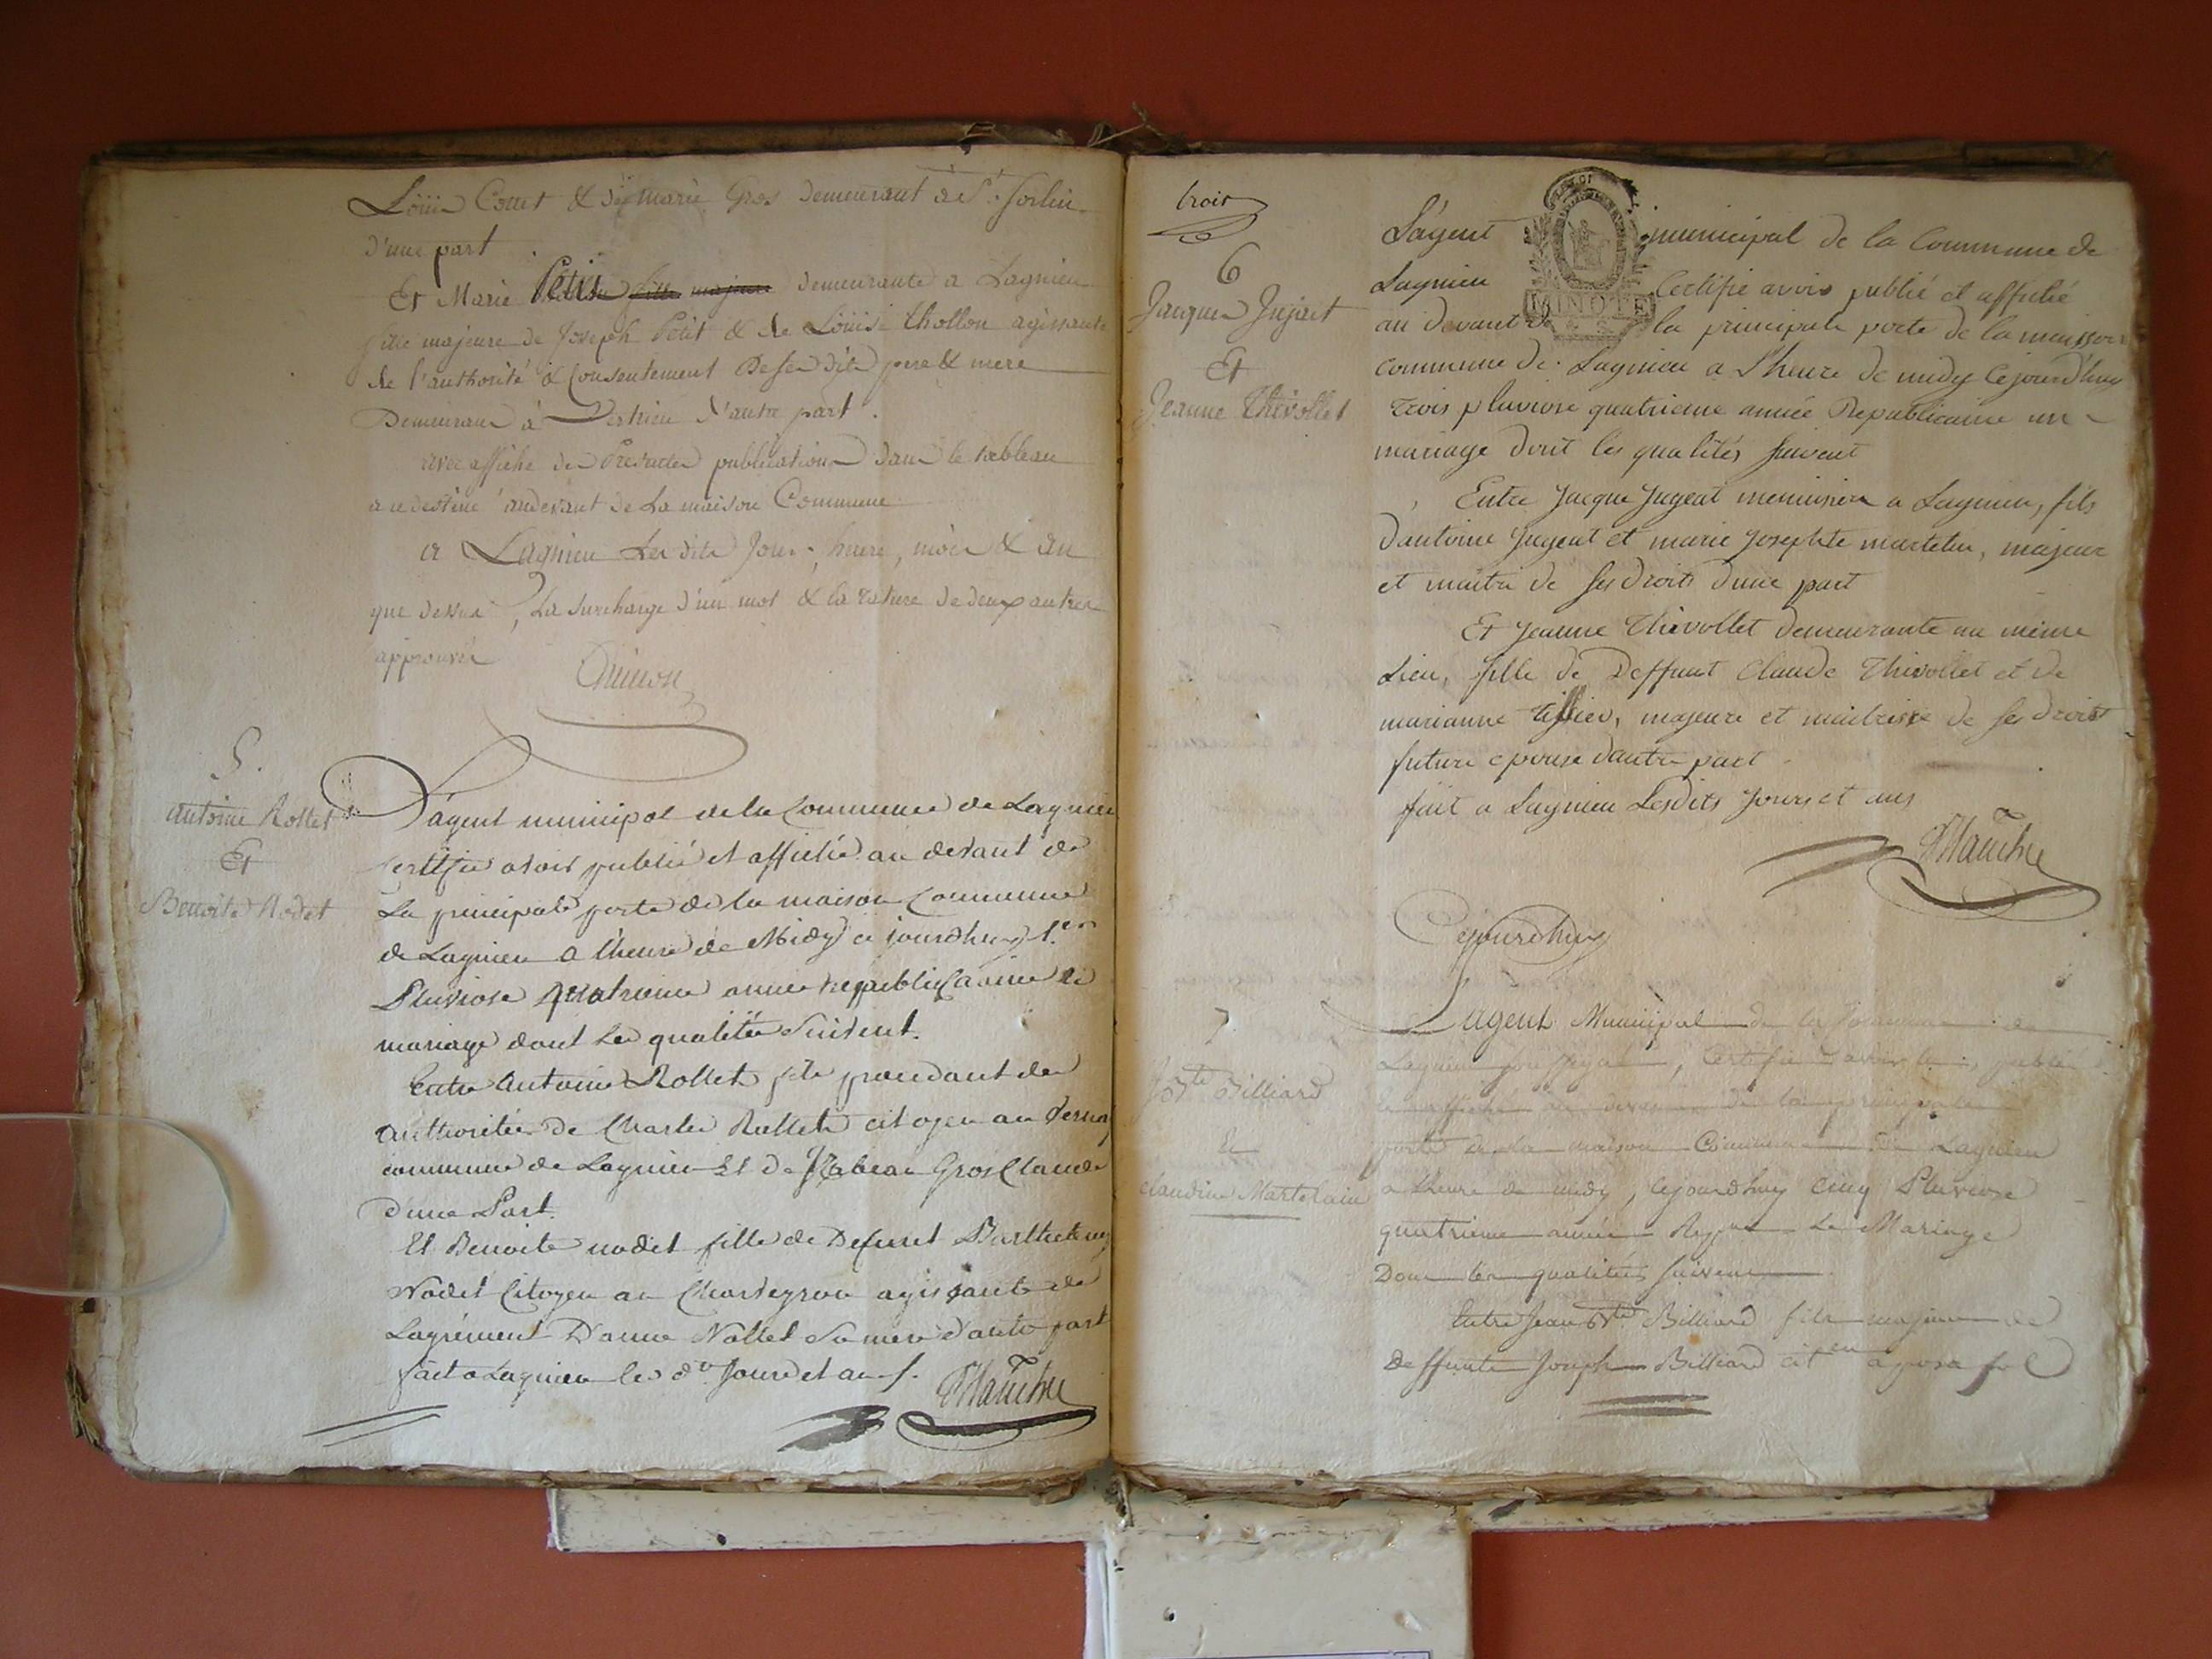 Louis Cottet & de Marie Gros demeurant à St. Sorlin
d'une part
Et Marie Petit fille majeure demeurante a Lagnieu
fille majeure de Joseph Petit & de Louise Chollon agissante
de l'authorité & Consentement De ses dits pere & mere
Demeurans à Vertrieu d'autre part.
avec affiche des publications dans le tableau
a ce destiné audevant de La maison Commune
a Lagnieu Les dits Jour, heure, mois & an
que dessus, La surcharge d'un mot & la rature de deux autres
approuvés
5.
antoine Rollet
Et
Benoite Nodet
L'agent municipal de la Commune de Lagnieu
certifie avoir publié et affiché au devant de
La principale porte de la maison Commune
de Lagnieu a l'heure de Midy ce jourdhuy 1.er
Pluviose quatrieme année republicaine le
mariage dont les qualités suivent.
Entre Antoine Rollet fils procedant de
authorité de Charles Rollet citoyen au
commune de Lagnieu Et de Izabeau Gros Claude
d'une Part.
Et Benoite nodet fille de Defunct Barthelemy
Nodet Citoyen au Charveyron agissante de
Lagrément D'anne Nollet sa mere d'autre part
fait a Lagnieu les d.ts Jours et an
trois
6
Jacques Jujeat
Et
Jeanne Thivollet
L'agent municipal de la Commune de
Lagnieu Certifie avoir publié et affiché
au devant de la principale porte de la maison
MINUTE
commune de Lagnieu a l'heure de midy Cejourdhuy
trois pluviose quatrieme année Republicaine un
mariage dont les qualités suivent
Entre Jacque Jugeat menuisier a Lagnieu, fils
dantoine Jugeat et marie Josephte martelin, majeur
et maitre de ses droits dune part
Et Jeanne Thivollet demeurante au même
Lieu, fille de Deffunt Claude Thivollet et de
marianne tissier, majeure et maitrisse de ses droits
future epouse dautre part
fait a Lagnieu Lesdits Jours et ans
Cejourdhuy
7.
Bte Billiard
Et
Claudine Martelain
L'agent Municipal de la Commune de
Lagnieu soussigné, Certifie avoir publié
et affiché au devant de la principale
porte de la maison Commune de Lagnieu
a l'heure de midy, Cejourdhuy Cinq Pluviose
quatrieme année Le Mariage
Dont les qualités suivent
Entre Jean Bte Billiard fils majeur de
deffunts Joseph Billiard cit.en a posa fol